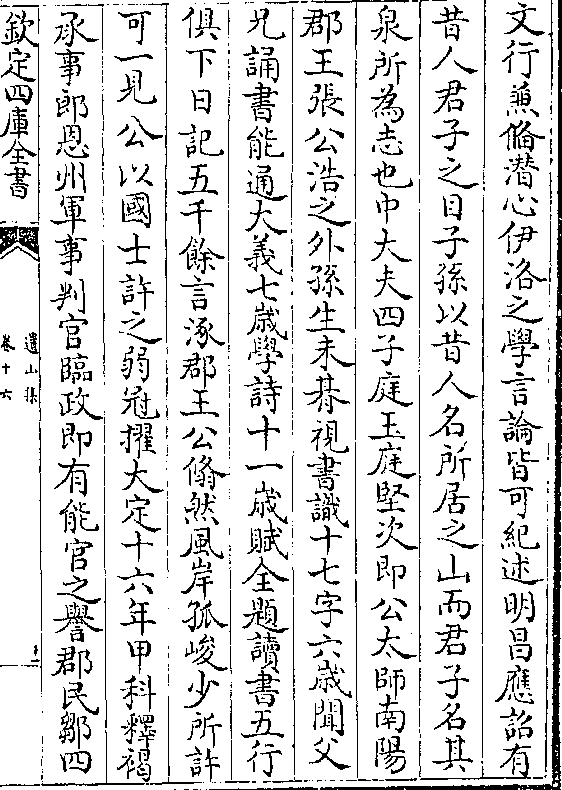 文行兼備潜心伊洛之學言論皆可紀述明昌應詔有
昔人君子之目子孫以昔人名所居之山而君子名其
泉所為志也中大夫四子庭玉庭堅次即公太師南陽
郡王張公浩之外孫生未朞視書識十七字六歲聞父
兄誦書能通大義七歲學詩十一歲賦全題讀書五行
俱下日記五千餘言涿郡王公翛然風岸孤峻少所許
可一見公以國士許之弱冠擢大定十六年甲科釋褐
承事郎恩州軍事判官臨政即有能官之譽郡民鄒四
欽定四庫全書
遺山集
卷十六
十一